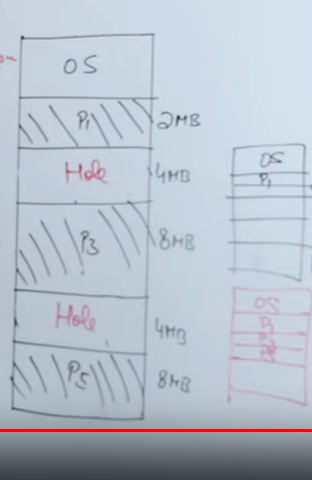 OS
P1 2MB
Hole 4MB
P3 8MB
Hole 4MB
P5 8MB
OS
P1
OS